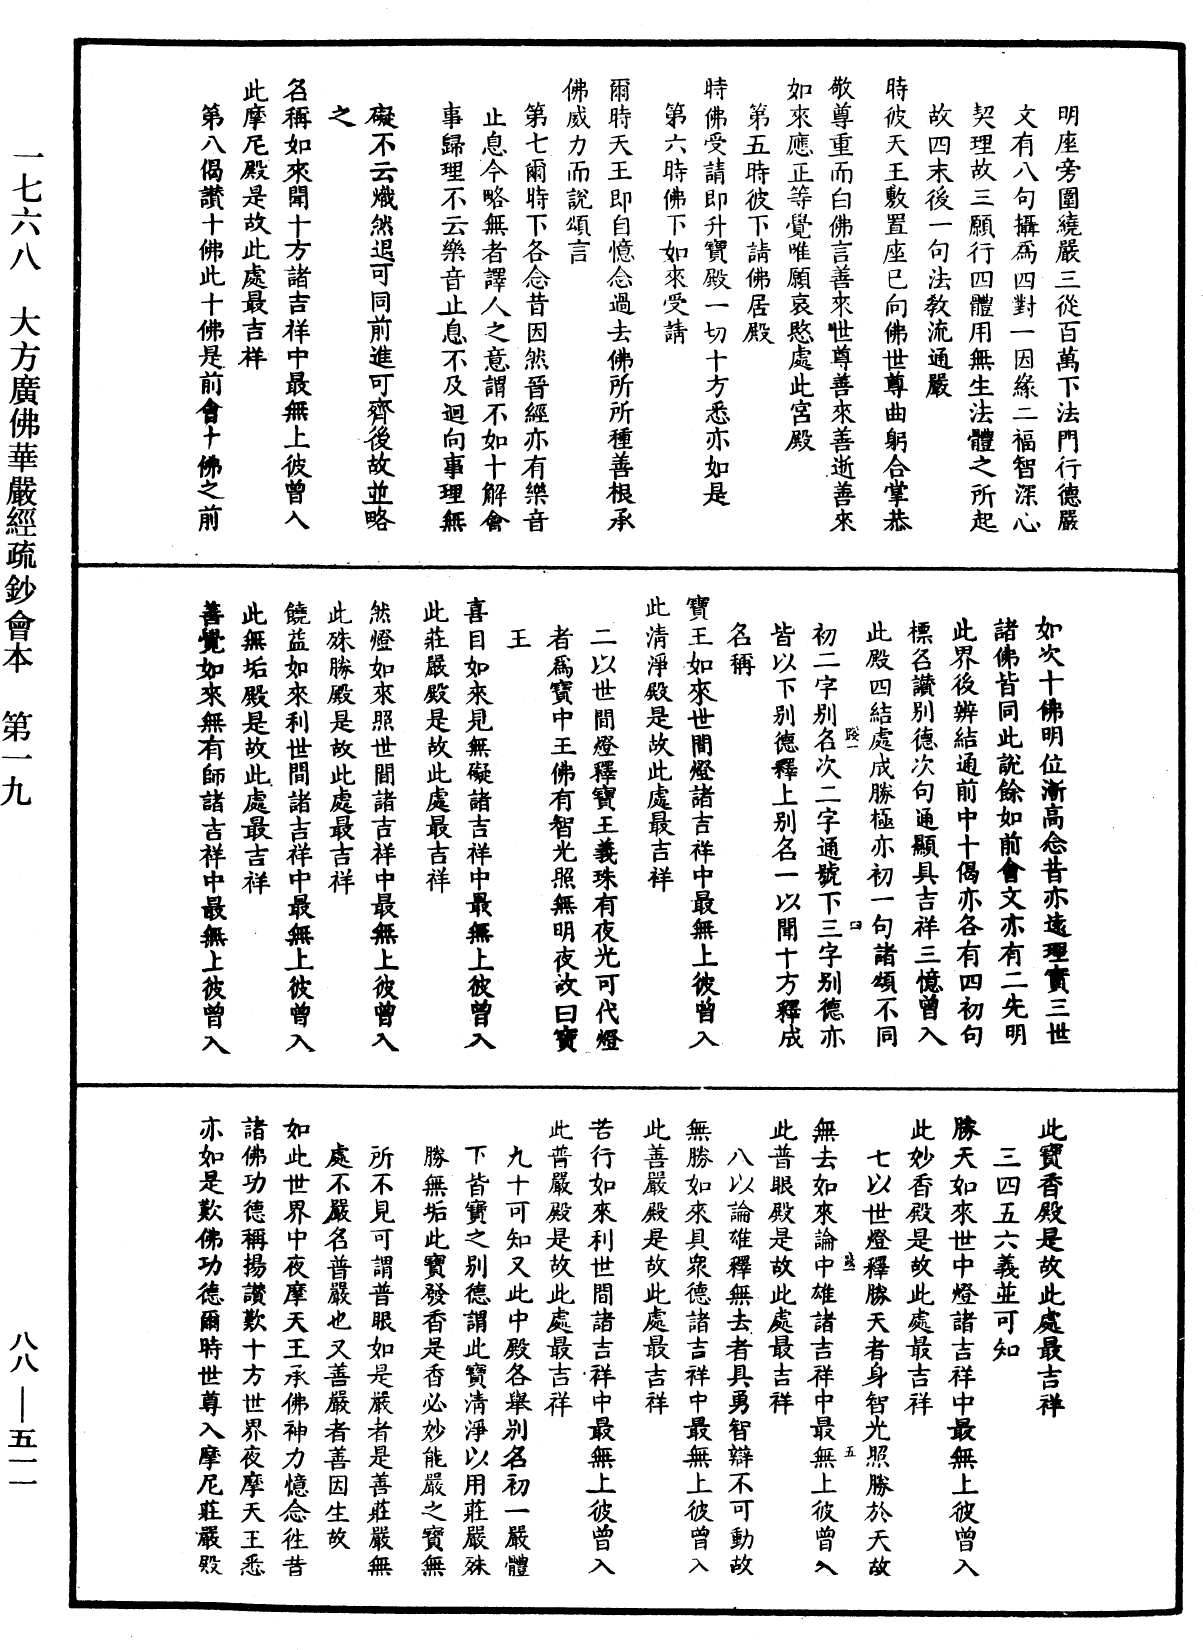 明座旁圍繞嚴三從百萬下法門行德嚴
文有八句攝爲四對一因緣二福智深心
契理故三願行四體用無生法體之所起
故四末後一句法教流通嚴
時彼天王敷置座已向佛世尊曲躬合掌恭
敬尊重而白佛言善來世尊善來善逝善來
如來應正等覺唯願哀愍處此宮殿
第五時彼下請佛居殿
時佛受請即升寶殿一切十方悉亦如是
第六時佛下如來受請
爾時天王即自憶念過去佛所所種善根承
佛威力而說頌言
第七爾時下各念昔因然晉經亦有樂音
止息今略無者譯人之意謂不如十解會
事歸理不云樂音止息不及迴向事理無
礙不云熾然退可同前進可齊後故並略
之
名稱如來聞十方諸吉祥中最無上彼曾入
此摩尼殿是故此處最吉祥
第八偈讚十佛此十佛是前會十佛之前
如次十佛明位漸高念昔亦遠理實三世
諸佛皆同此說餘如前會文亦有二先明
此界後辨結通前中十偈亦各有四初句
標名讚別德次句通顯具吉祥三憶曾入
此殿四結處成勝極亦初一句諸頌不同
初二字別名次二字通號下三字別德亦
皆以下別德釋上別名一以聞十方釋成
名稱
寶王如來世間燈諸吉祥中最無上彼曾入
此清淨殿是故此處最吉祥
二以世間燈釋寶王義珠有夜光可代燈
者爲寶中王佛有智光照無明夜故曰寶
王
喜目如來見無礙諸吉祥中最無上彼曾入
此莊嚴殿是故此處最吉祥
然燈如來照世間諸吉祥中最無上彼曾入
此殊勝殿是故此處最吉祥
饒益如來利世間諸吉祥中最無上彼曾入
此無垢殿是故此處最吉祥
善覺如來無有師諸吉祥中最無上彼曾入
此寶香殿是故此處最吉祥
三四五六義並可知
勝天如來世中燈諸吉祥中最無上彼曾入
此妙香殿是故此處最吉祥
七以世燈釋勝天者身智光照勝於天故
無去如來論中雄諸吉祥中最無上彼曾入
此普眼殿是故此處最吉祥
八以論雄釋無去者具勇智辯不可動故
無勝如來具衆德諸吉祥中最無上彼曾入
此善嚴殿是故此處最吉祥
苦行如來利世間諸吉祥中最無上彼曾入
此普嚴殿是故此處最吉祥
九十可知又此中殿各舉別名初一嚴體
下皆寶之別德謂此寶清淨以用莊嚴殊
勝無垢此寶發香是香必妙能嚴之寶無
所不見可謂普眼如是嚴者是善莊嚴無
處不嚴名普嚴也又善嚴者善因生故
如此世界中夜摩天王承佛神力憶念往昔
諸佛功德稱揚讚歎十方世界夜摩天王悉
亦如是歎佛功德爾時世尊入摩尼莊嚴殿
一七六八　大方廣佛華嚴經疏鈔會本　第一九
八八—五一一